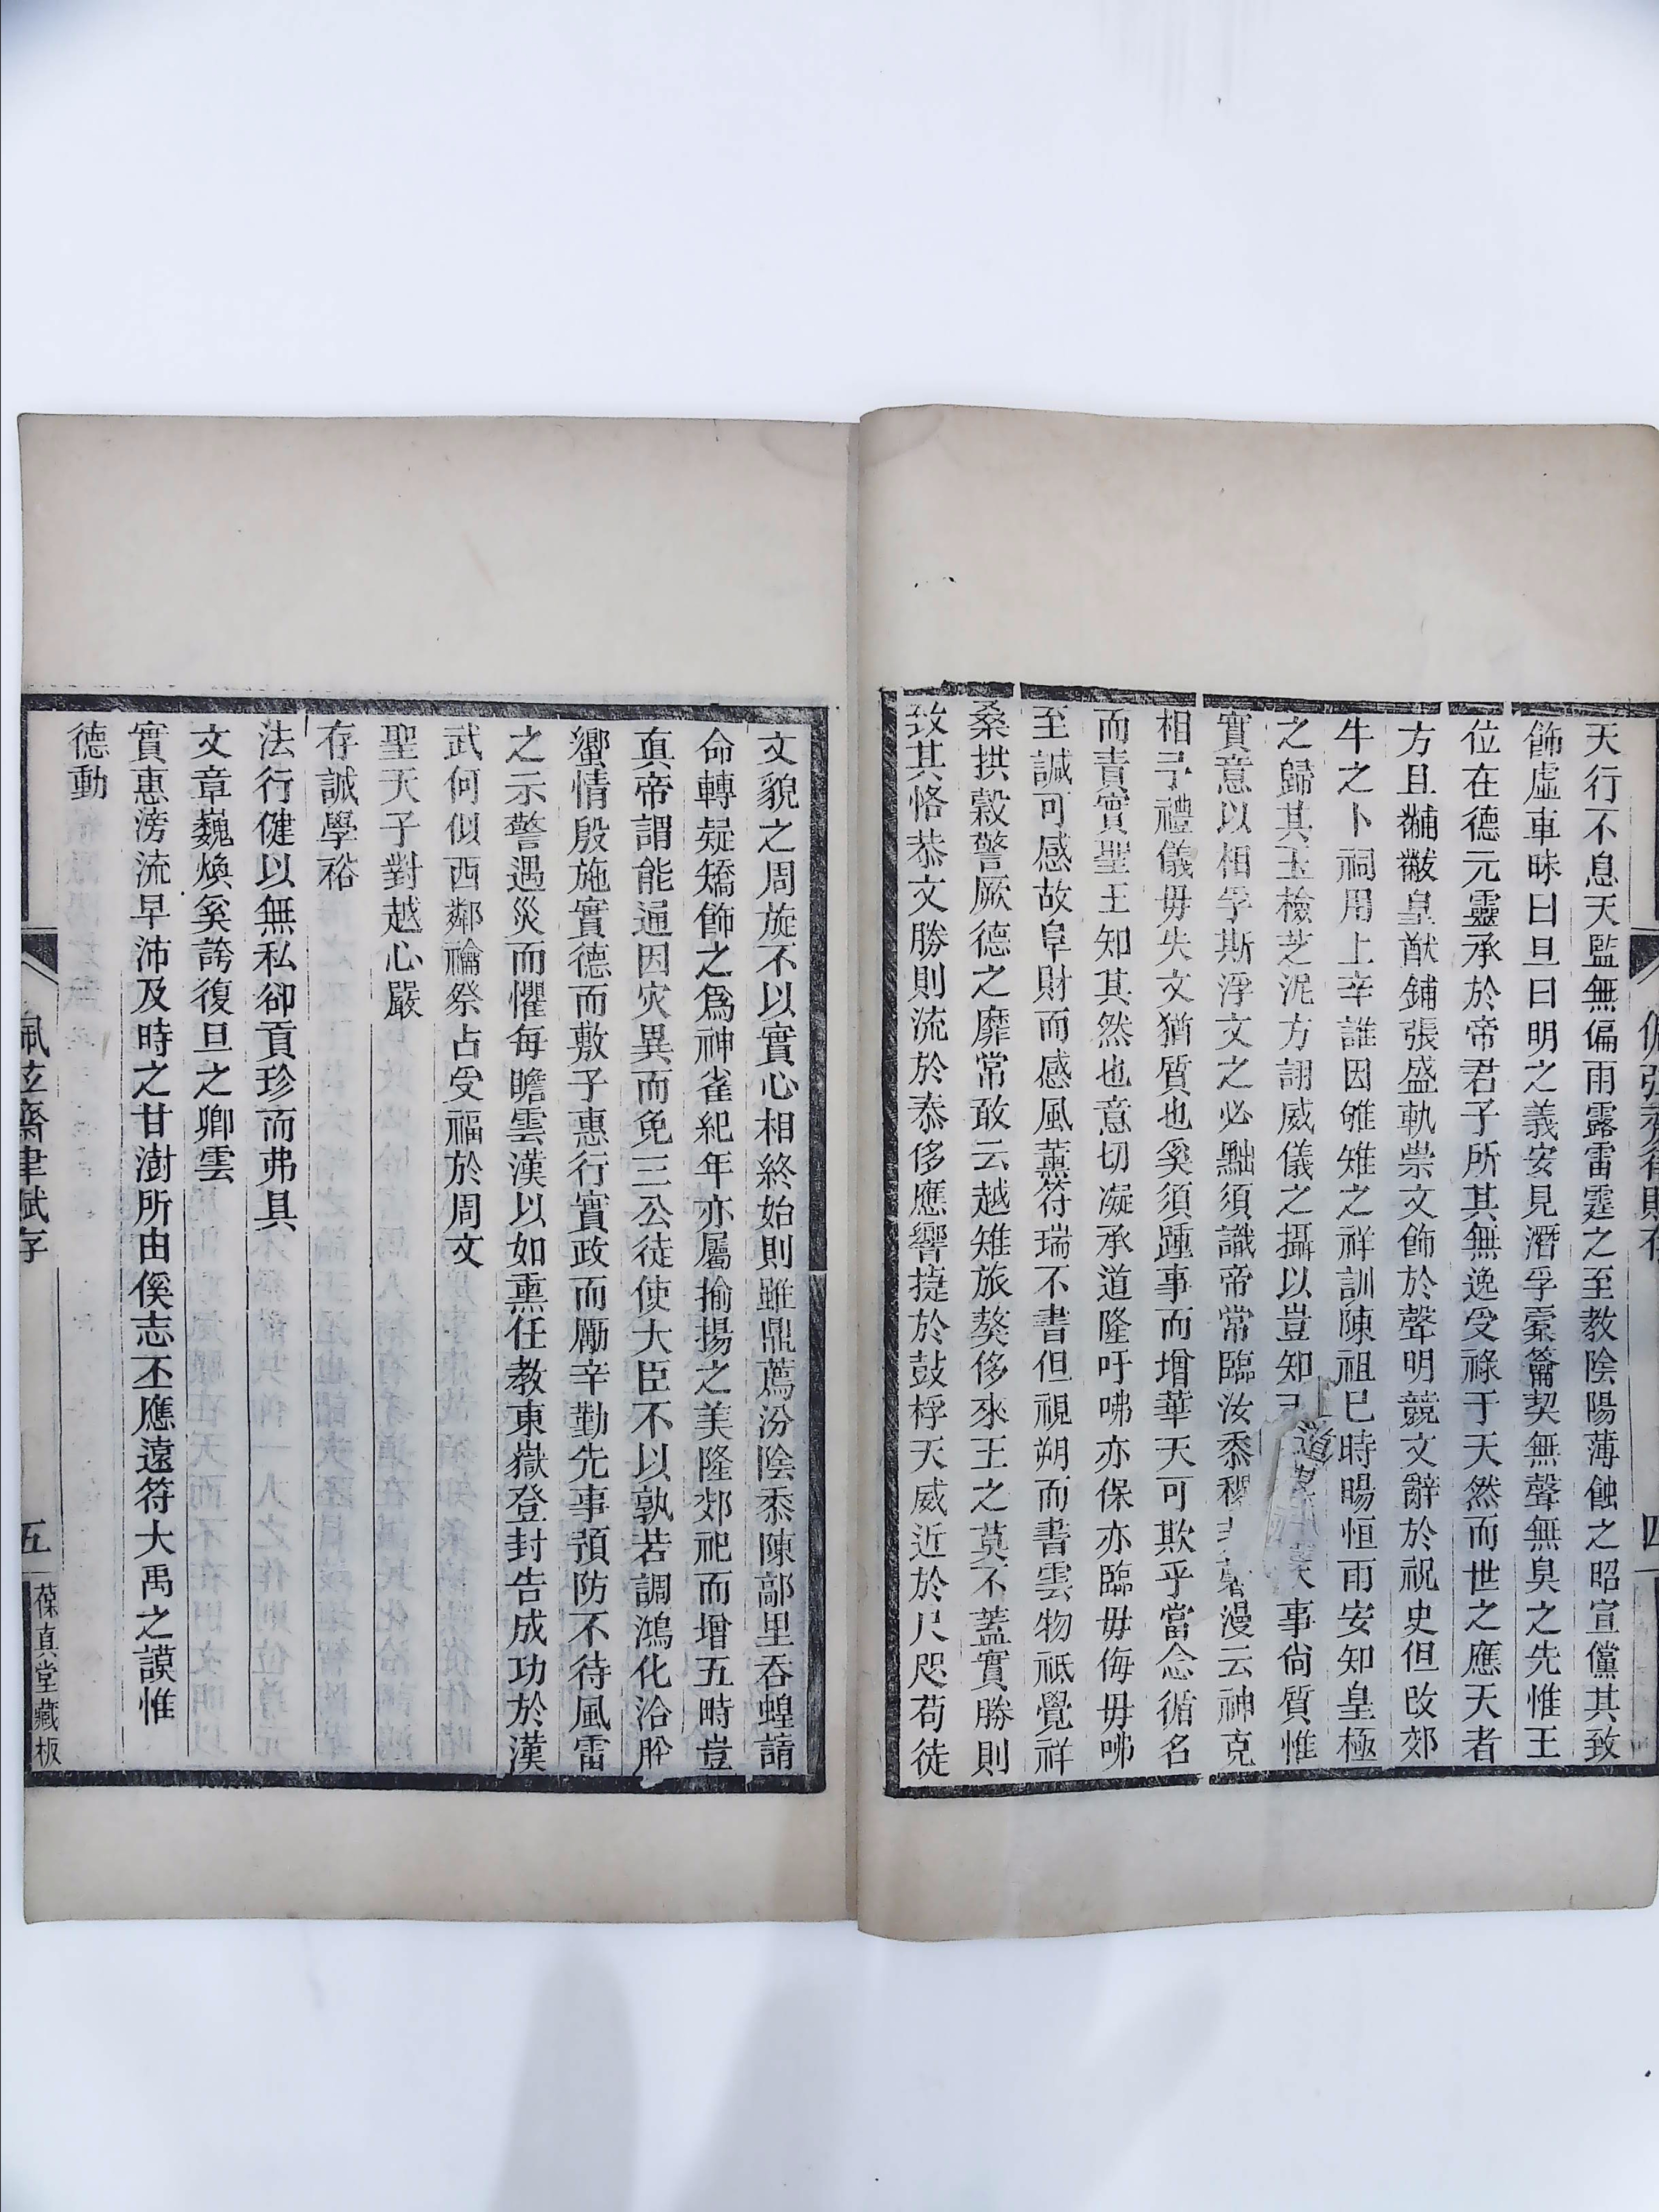 天行不息天監無偏雨露雷霆之至教陰陽薄蝕之昭宣儻其致
飾虛車昧曰旦曰明之義安見潛孚橐籥契無聲無臭之先惟王
位在德元靈承於帝君子所其無逸受祿于天然而世之應天者
方且黼黻皇猷鋪張盛軌崇文飾於聲明競文辭於祝史但改郊
牛之卜祠用上辛誰因雊雉之祥訓陳祖巳時暘恒雨安知皇極
之歸其玉檢芝泥方詡威儀之攝以豈知 道 事尙質惟
實意以相孚斯浮文之必黜須識帝常臨汝黍稷 漫云神克
相予禮儀毋失文猶質也奚須踵事而增華天可欺乎當念循名
而責實聖王知其然也意切凝承道隆吁咈亦保亦臨毋侮毋咈
至諴可感故阜財而感風薰符瑞不書但視朔而書雲物祗覺祥
桑拱榖警厥德之靡常敢云越雉旅獒侈來王之莫不蓋實勝則
致其恪恭文勝則流於泰侈應響捷於鼓桴天威近於尺咫苟徒
佩弦齋律賦存
四
文貌之周旋不以實心相終始則雖鼎薦汾陰黍陳鄗里吞蝗請
命轉疑矯飾之爲神雀紀年亦屬揄揚之美隆郊祀而增五畤豈
眞帝謂能通因灾異而免三公徒使大臣不以孰若調鴻化洽肸
蠁情殷施實德而敷子惠行實政而勵辛勤先事預防不待風雷
之示警遇災而懼每瞻雲漢以如熏任教東嶽登封告成功於漢
武何似西鄰禴祭占受福於周文
聖天子對越心嚴
存誠學裕
法行健以無私卻貢珍而弗具
文章巍煥奚誇復旦之卿雲
實惠滂流早沛及時之甘澍所由傒志丕應遠符大禹之謨惟
德動
佩弦齋律賦存
五
葆真堂藏板